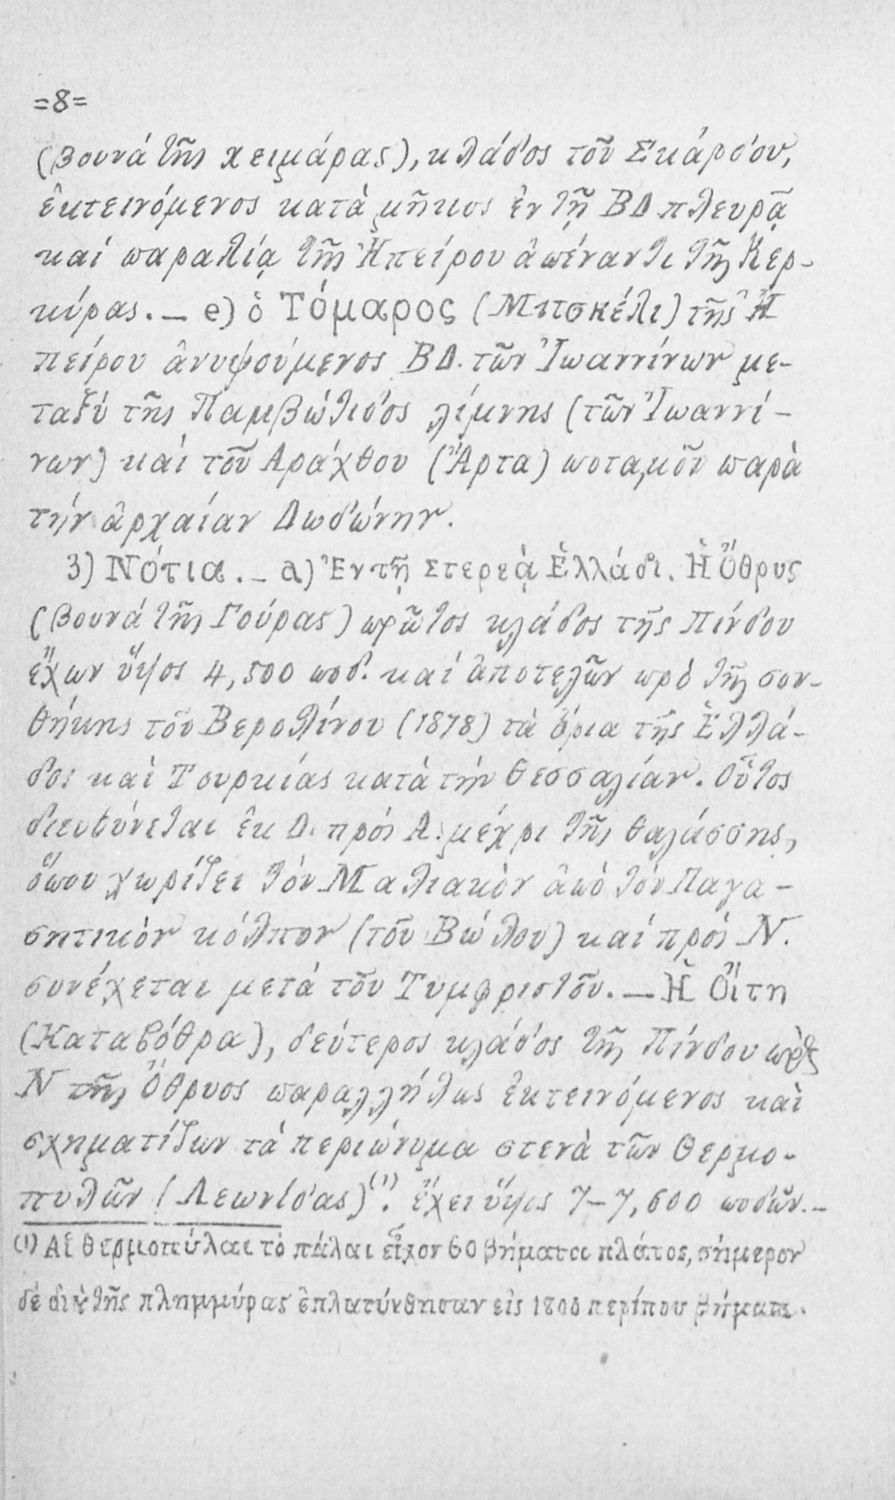 =8=
(βουνά τῆς χειμάρας), κλάδος τοῦ Σκάρδου,
ἐκτεινόμενος κατὰ μῆκος ἐν τῇ ΒΔ πλευρᾷ
καί παραλίᾳ τῆς Ἠπείρου ἀπέναντι τῆς Κερ-
κύρας. – e) ὁ Τόμαρος (Μιτσκέλι) τῆς Ἠ
πείρου ἀνυψούμενος ΒΔ. τῶν Ἰωαννίνων με-
ταξύ τῆς Παμβώτιδος λίμνης (τῶν Ἰωαννί-
νων) καὶ τοῦ Αράχθου (Ἄρτα) ποταμοῦ παρὰ
τήν ἀρχαίαν Δωδώνην.
3) Νότια. – a) Ἐν τῇ Στερεᾷ Ἑλλάδι. Ἡ Ὄθρυς
(βουνά τῆς Γούρας) πρῶτος κλάδος τῆς Πίνδου
ἔχων ὕψος 4,500 ποδ. καί ἀποτελῶν πρό τῆς συν-
θήκης τοῦ Βερολίνου (1878) τὰ ὅρια τῆς Ἑλλά-
δος καὶ Τουρκίας κατὰ τήν Θεσσαλίαν. Οὗτος
διευθύνεται ἐκ Δ. πρός Α. μέχρι τῆς θαλάσσης,
ὅπου χωρίζει τόν Μαλιακὸν ἀπό τόν Παγα-
σητικὸν κόλπον (τοῦ Βώλου) καί πρός Ν.
συνέχεται μετά τοῦ Τυμφρηστοῦ. – Ἡ Οἴτη
(Καταβόθρα), δεύτερος κλάδος τῆς Πίνδου πρὸς
Ν τῆς Ὄθρυος παραλλήλως ἐκτεινόμενος καὶ
σχηματίζων τὰ περιώνυμα στενὰ τῶν Θερμο-
πυλῶν (Λεωνίδας)(1). ἔχει ὕψος 7–7,600 ποδῶν. –
(1) Αἱ θερμοπύλαι τὸ πάλαι εἶχον 60 βήματα πλάτος, σήμερον
δὲ διὰ τῆς πλημμύρας ἐπλατύνθησαν εἰς 1800 περίπου βήματα.